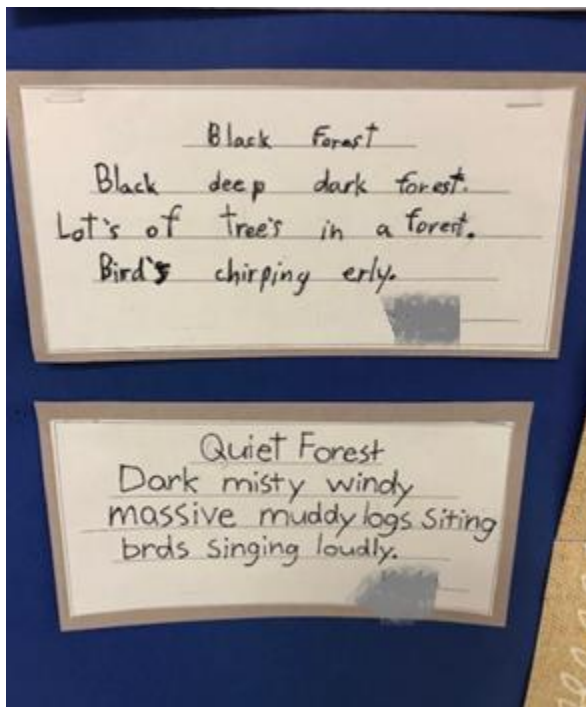 Black Forest
Black deep dark forest.
Lot's of tree's in a forest.
Bird's chirping erly.
Quiet Forest
Dark misty windy
massive muddy logs siting
brds singing loudly.